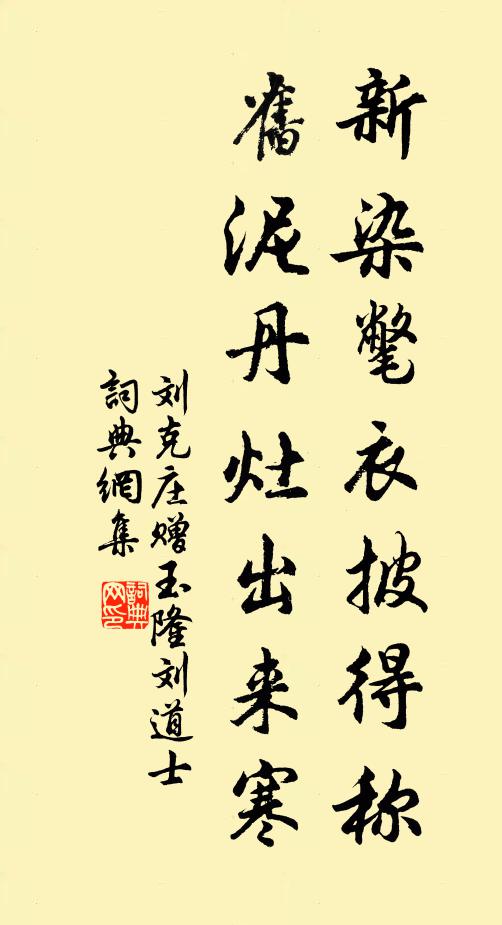 新染氅衣披得称
舊泥丹灶出来寒
刘克庄赠玉隆刘道士
詞典網集
詞典
网印